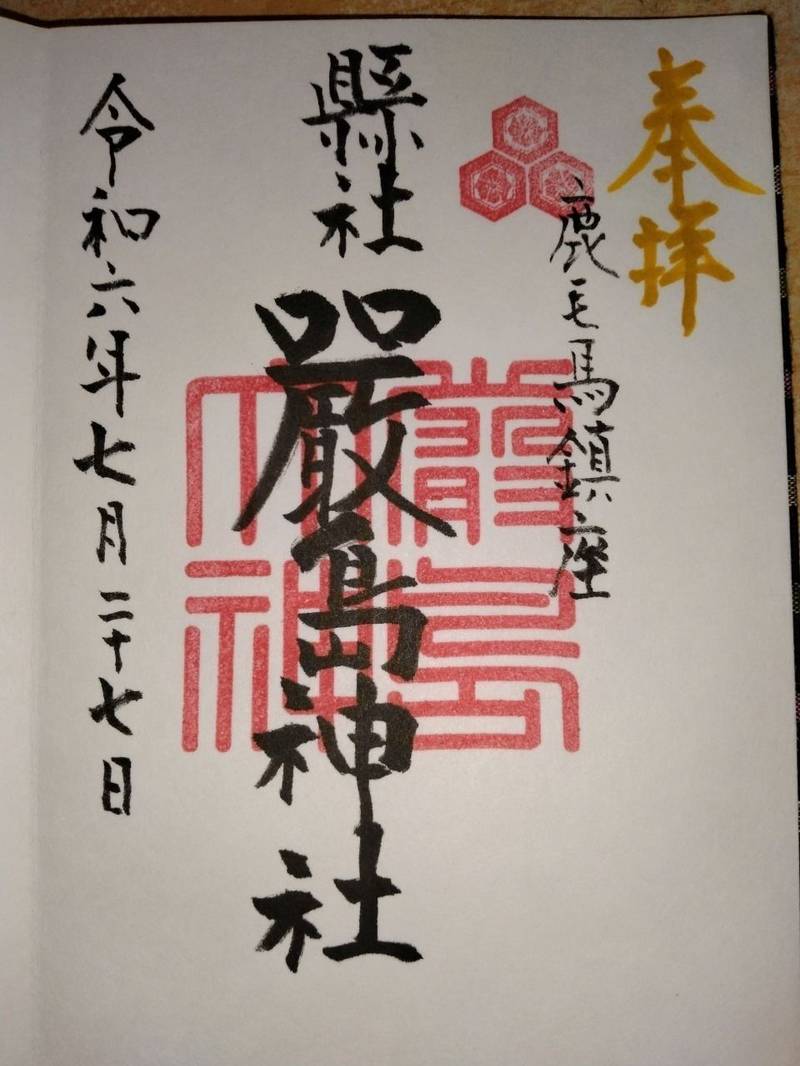 奉拝
鹿毛馬鎮座
縣社
嚴島神社
令和六年七月二十七日
嚴島
大神